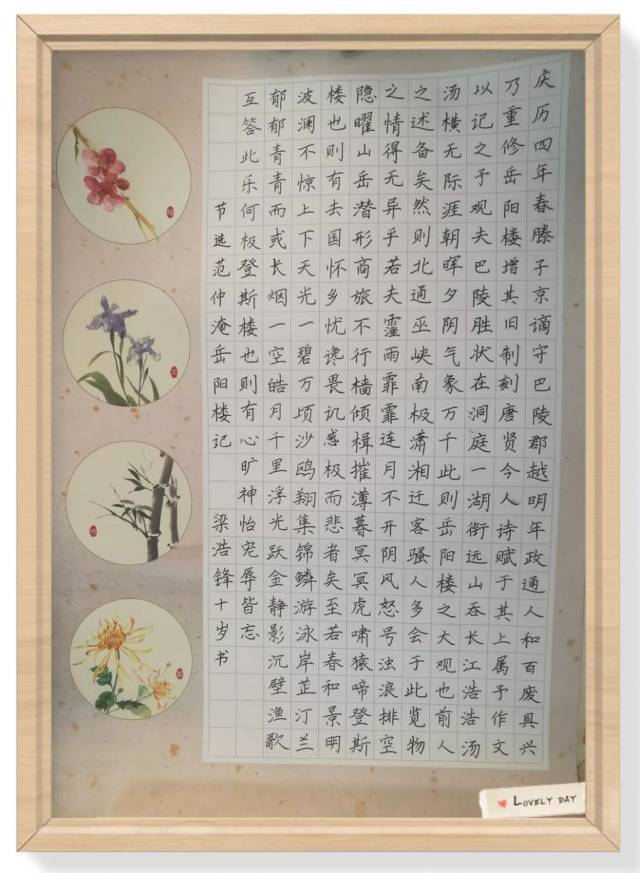 庆历四年春滕子京谪守巴陵郡越明年政通人和百废具兴
乃重修岳阳楼增其旧制刻唐贤今人诗赋于其上属予作文
以记之予观夫巴陵胜状在洞庭一湖衔远山吞长江浩浩汤
汤横无际涯朝晖夕阴气象万千此则岳阳楼之大观也前人
之述备矣然则北通巫峡南极潇湘迁客骚人多会于此览物
之情得无异乎若夫霪雨霏霏连月不开阴风怒号浊浪排空
隐曜山岳潜形商旅不行樯倾楫摧薄暮冥冥虎啸猿啼登斯
楼也则有去国怀乡忧谗畏讥感极而悲者矣至若春和景明
波澜不惊上下天光一碧万顷沙鸥翔集锦鳞游泳岸芷汀兰
郁郁青青而或长烟一空皓月千里浮光跃金静影沉壁渔歌
互答此乐何极登斯楼也则有心旷神怡宠辱皆忘
节选范仲淹岳阳楼记 梁浩锋十岁书
LOVELY DAY